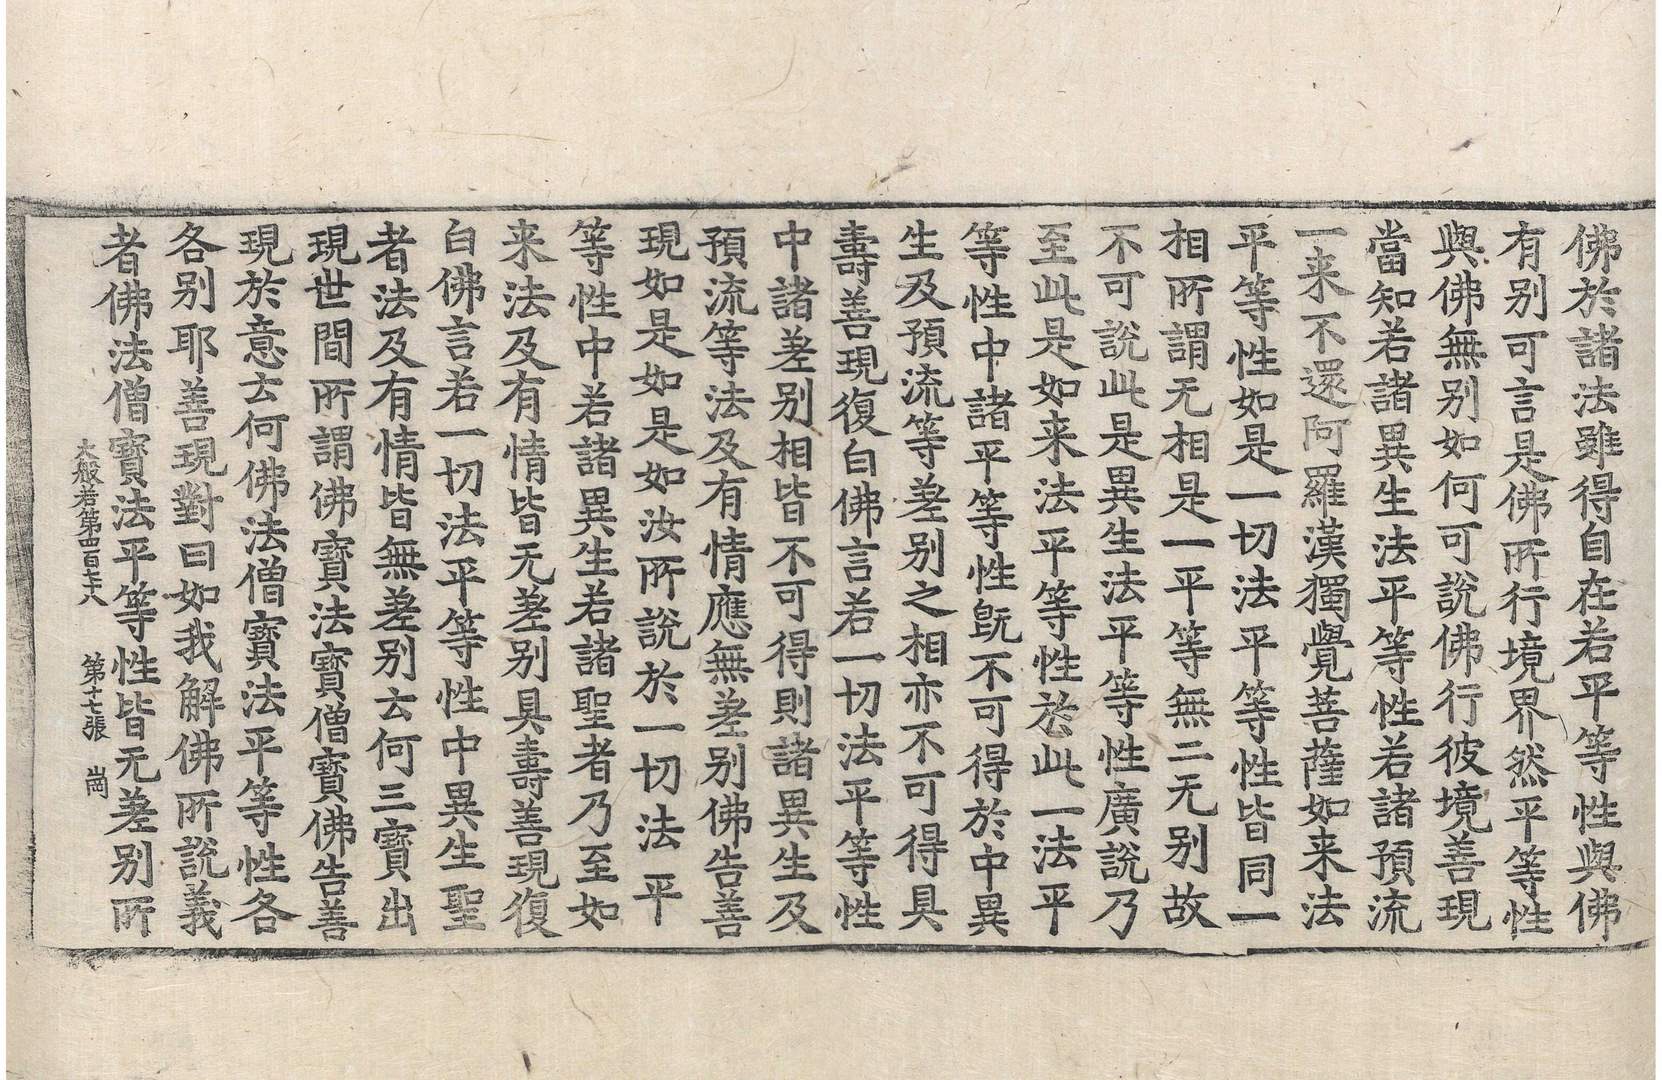 佛於諸法雖得自在若平等性與佛
有别可言是佛所行境界然平等性
與佛無别如何可説佛行彼境善現
當知若諸異生法平等性若諸預流
一来不還阿羅漢獨覺菩薩如来法
平等性如是一切法平等性皆同一
相所謂无相是一平等無二无别故
不可説此是異生法平等性廣説乃
至此是如来法平等性於此一法平
等性中諸平等性旣不可得於中異
生及預流等差别之相亦不可得具
壽善現復白佛言若一切法平等性
中諸差别相皆不可得則諸異生及
預流等法及有情應無差别佛告善
現如是如是如汝所說於一切法平
等性中若諸異生若諸聖者乃至如
来法及有情皆无差别具壽善現復
白佛言若一切法平等性中異生聖
者法及有情皆無差别云何三寶出
現世間所謂佛寶法寶僧寶佛告善
現於意云何佛法僧寶法平等性各
各别耶善現對曰如我解佛所說義
者佛法僧寶法平等性皆无差别所
大般若第四百七十八 第十七張 崗